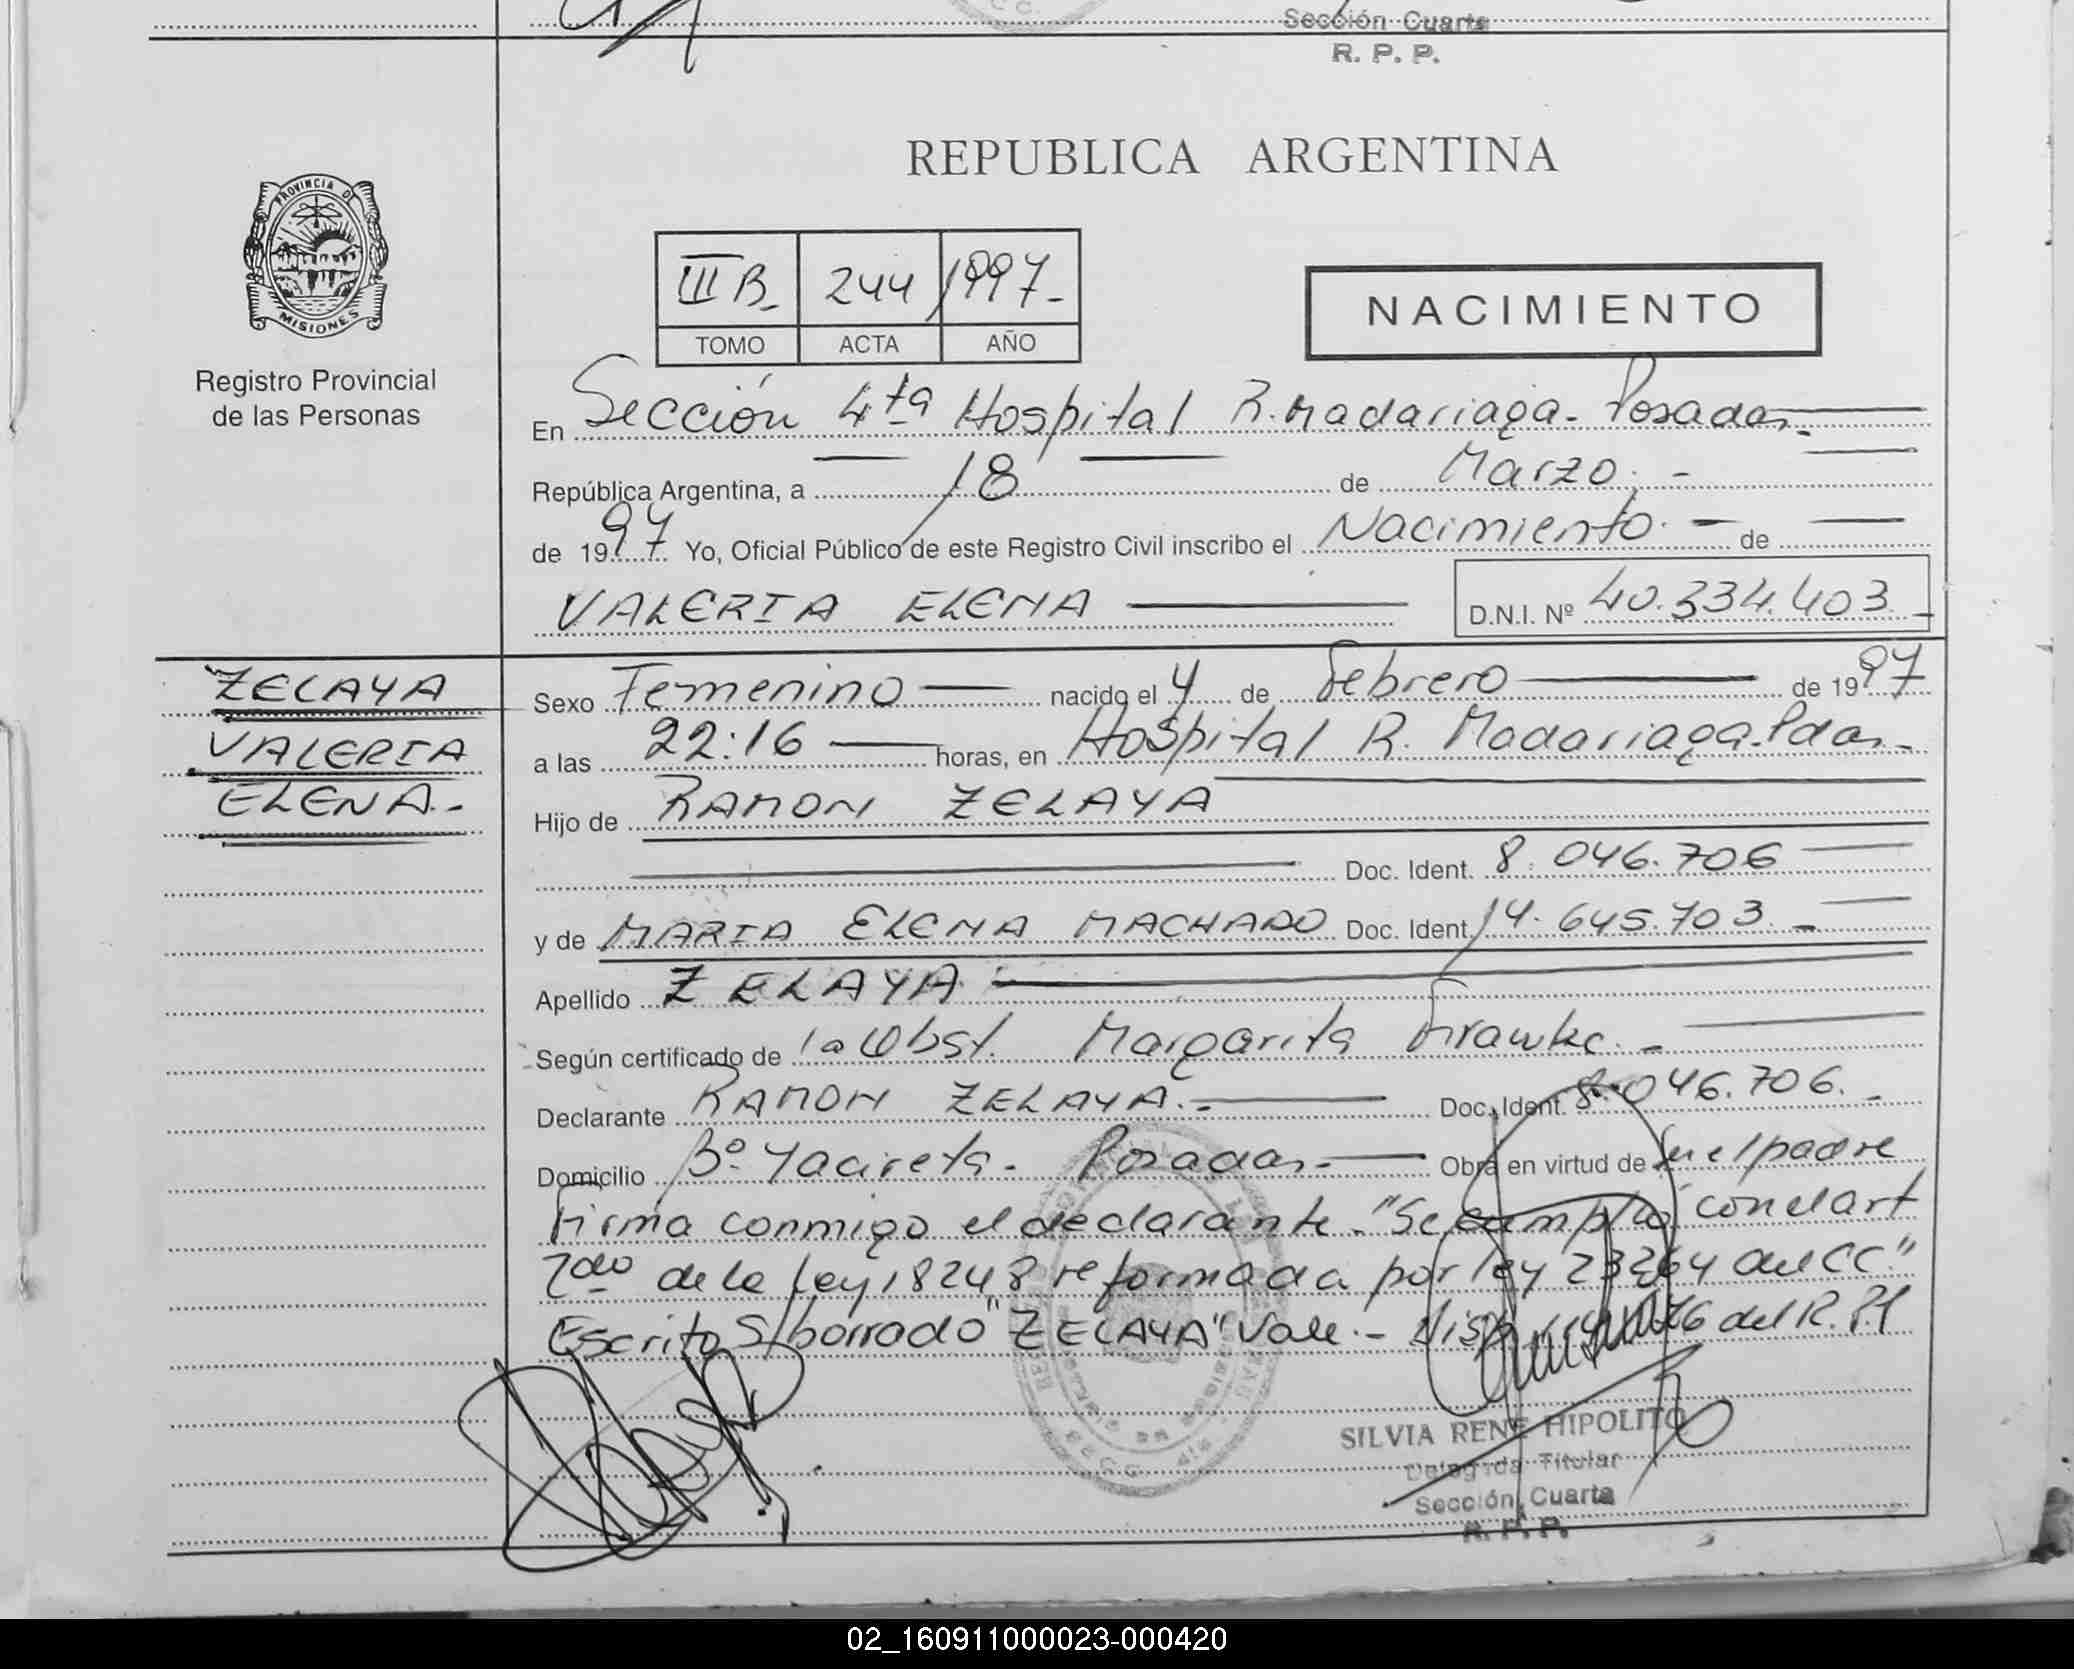 Sección Cuarta
R. P. P.
REPUBLICA ARGENTINA
PROVINCIA DE
MISIONES
Registro Provincial
de las Personas
III B- 244 1997-
TOMO ACTA AÑO
NACIMIENTO
En Sección 4ta Hospital R. Madariaga - Posadas -
República Argentina, a 18 de Marzo. -
de 1997 Yo, Oficial Público de este Registro Civil inscribo el Nacimiento. - de
VALERIA ELENA D.N.I. Nº 40.334.403 -
ZELAYA
VALERIA
ELENA.-
Sexo Femenino nacido el 4 de Febrero de 1997
a las 22:16 horas, en Hospital R. Madariaga-Pdas-
Hijo de RAMON ZELAYA
Doc. Ident. 8.046.706
y de MARIA ELENA MACHADO Doc. Ident. 14.645.703 -
Apellido ZELAYA
Según certificado de la Obst. Margarita -
Declarante RAMON ZELAYA.- Doc. Ident. 8.046.706.-
Domicilio Bº Yacireta - Posadas- Obra en virtud de Ser el padre
Firma conmigo el declarante - "Se cumplió con el art
2do de la Ley 18248 reformada por ley 23264 del CC"
Escrito S/borrado "ZELAYA" Vale.- Disp. 76 del R.P.P
SILVIA RENE HIPOLITO
Delegada Titular
Sección Cuarta
R. P. P.
02_160911000023-000420